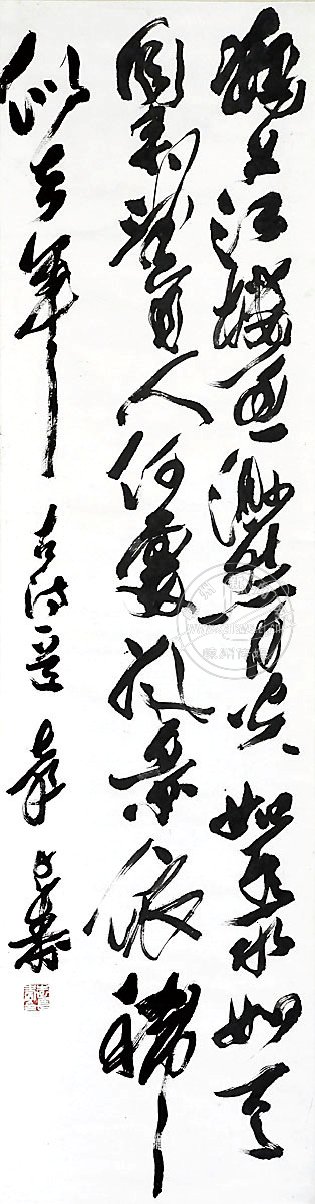 獨上江樓思渺然月光如水水如天
同來望月人何處風景依稀
似去年 古詩一首